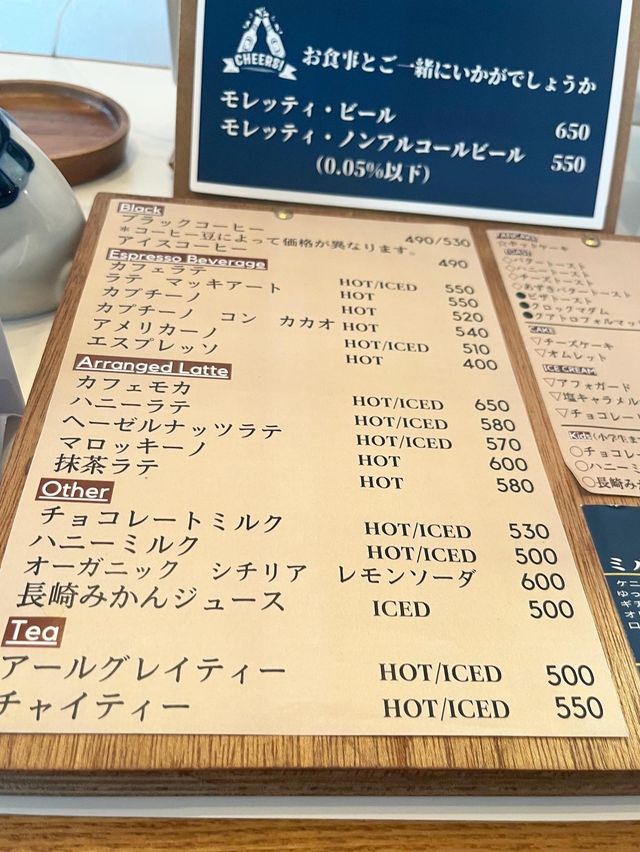 CHEERS!
お食事とご一緒にいかがでしょうか
モレッティ・ビール 650
モレッティ・ノンアルコールビール 550
(0.05%以下)
Black
ブラックコーヒー 490/530
＊コーヒー豆によって価格が異なります。
アイスコーヒー 490
Espresso Beverage
カフェラテ HOT/ICED 550
ラテ マッキアート HOT 550
カプチーノ HOT 520
カプチーノ コン カカオ HOT 540
アメリカーノ HOT/ICED 510
エスプレッソ HOT 400
Arranged Latte
カフェモカ HOT/ICED 650
ハニーラテ HOT/ICED 580
ヘーゼルナッツラテ HOT/ICED 570
マロッキーノ HOT 600
抹茶ラテ HOT 580
Other
チョコレートミルク HOT/ICED 530
ハニーミルク HOT/ICED 500
オーガニック シチリア レモンソーダ 600
長崎みかんジュース ICED 500
Tea
アールグレイティー HOT/ICED 500
チャイティー HOT/ICED 550
PANCAKE
☆ホットケーキ
TOAST
◇バタートースト
◇ハニートースト
◇チーズトースト
◇あずきバタートースト
●ピザトースト
●クロックマダム
●クアトロフォルマッ
CAKE
▽チーズケーキ
▽オムレット
ICE CREAM
▽アフォガード
▽塩キャラメル
▽チョコレー
Kids(小学生ま
○チョコレー
○ハニーミ
○長崎みか